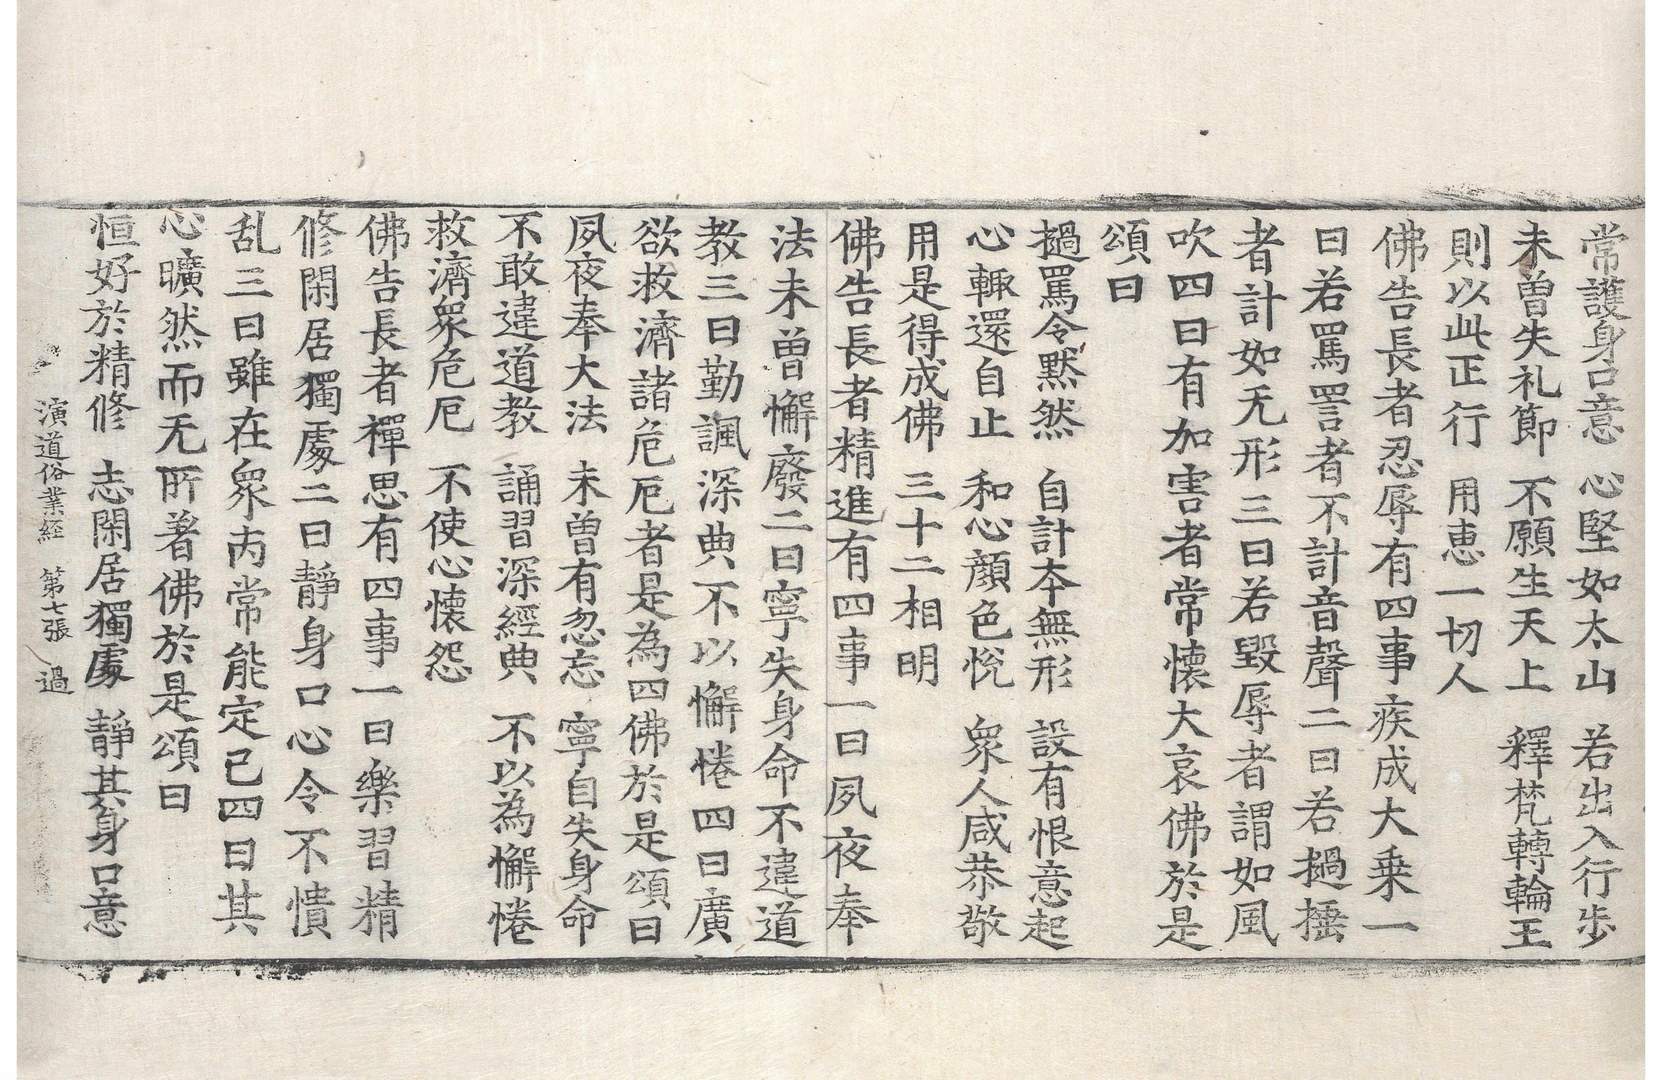 常護身口意　心堅如太山　若出入行步
未曽失礼節　不願生天上　釋梵轉輪王
則以此正行　用恵一切人
佛告長者忍辱有四事疾成大乗一
曰若罵詈者不計音聲二曰若撾捶
者計如无形三曰若毀辱者謂如風
吹四曰有加害者常懷大哀佛於是
頌曰
撾罵令黙然　自計夲無形　設有恨意起
心輙還自止　和心顔色恱　衆人咸恭敬
用是得成佛　三十二相明
佛告長者精進有四事一曰夙夜奉
法未曽懈廢二曰寧失身命不違道
教三曰勤諷深典不以懈惓四曰廣
欲救濟諸危厄者是為四佛於是頌曰
夙夜奉大法　未曽有忽忘　寧自失身命
不敢違道教　誦習深經典　不以為懈惓
救濟衆危厄　不使心懷怨
佛告長者禪思有四事一曰樂習精
修閑居獨處二曰靜身口心令不憒
乱三曰雖在衆内常能定己四曰其
心曠然而无所著佛於是頌曰
恒好於精修　志閑居獨處　靜其身口意
演道俗業経　第七張　過